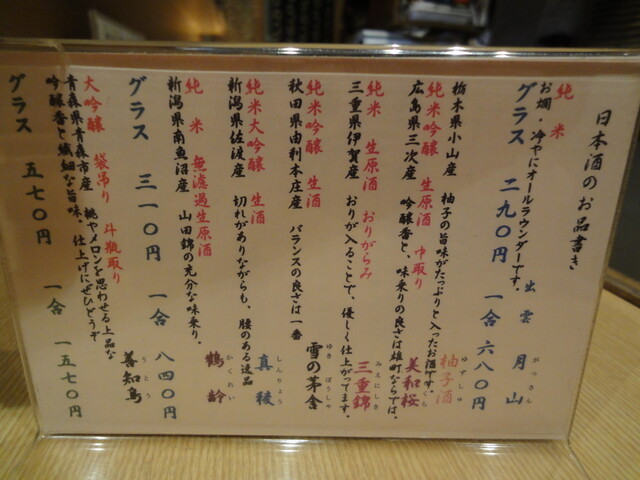 日本酒のお品書き
純米 出雲 月山
がっさん
お燗・冷やにオールラウンダーです。
グラス 二九〇円 一合 六八〇円
柚子酒
ゆずしゅ
栃木県小山産 柚子の旨味がたっぷりと入ったお酒です。
純米吟醸 生原酒 中取り 美和桜
広島県三次産 吟醸香と、味乗りの良さは雄町ならでは。
純米 生原酒 おりがらみ 三重錦
みえにしき
三重県伊賀産 おりが入ることで、優しく仕上がってます。
純米吟醸 生酒 雪の茅舎
ゆき ぼうしゃ
秋田県由利本庄産 バランスの良さは一番
純米大吟醸 生酒 真稜
しんりょう
新潟県佐渡産 切れがありながらも、腰のある逸品
純米 無濾過生原酒 鶴齢
かくれい
新潟県南魚沼産 山田錦の充分な味乗り。
グラス 三一〇円 一合 八四〇円
大吟醸 袋吊り 斗瓶取り 善知鳥
うとう
青森県青森市産 桃やメロンを思わせる上品な
吟醸香と繊細な旨味。仕上げにぜひどうぞ
グラス 五七〇円 一合 一五七〇円